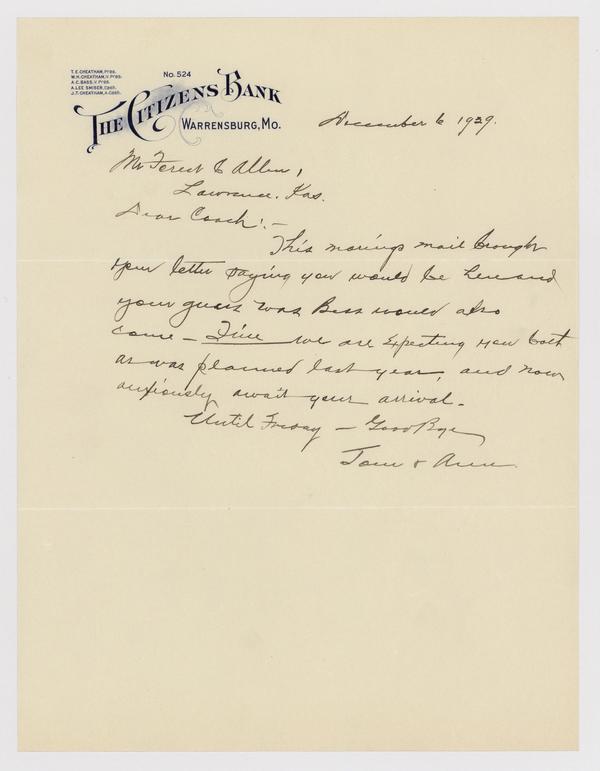 T. E. CHEATHAM, Pres.
W. H. CHEATHAM, V. Pres.
A. C. BASS, V. Pres.
A. LEE SMISER, Cash.
J. T. CHEATHAM, A. Cash.
No. 524
THE CITIZENS BANK
WARRENSBURG, MO.
December 6 1929.
Mr Forest C Allen,
Lawrence. Kas.
Dear Coach:-
This mornings mail brought
your letter saying you would be here and
your guess was Bess would also
come - Fine we are expecting you both
as was planned last year, and now
anxiously await your arrival.
Until Friday - Good Bye
Tom & Ann